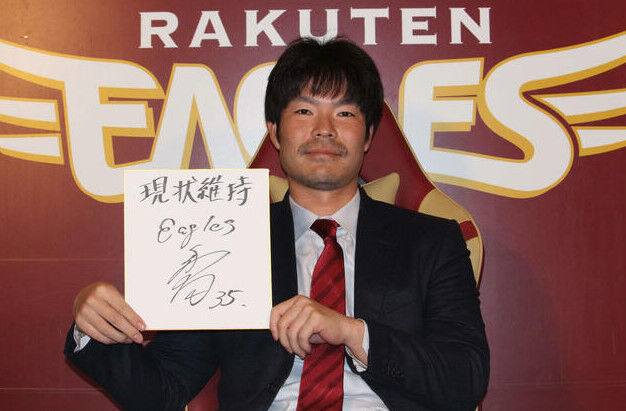 RAKUTEN
EAGLES
現状維持
Eagles
35.